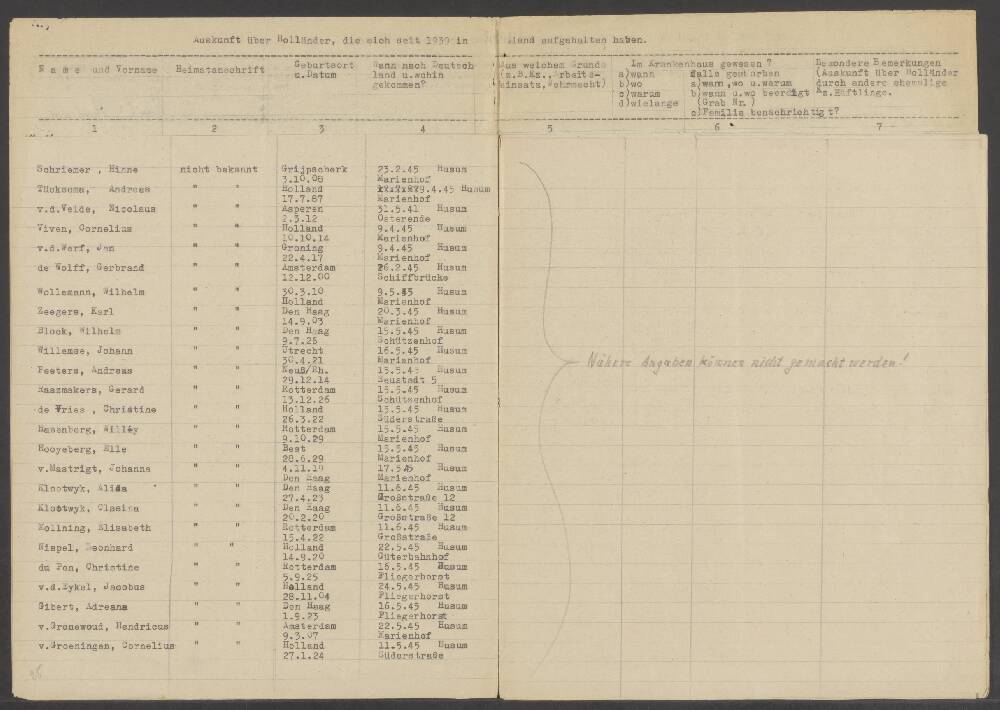 Auskunft über Holländer, die sich seit 1939 in land aufgehalten haben.
Name und Vorname Heimatanschrift Geburtsort u.Datum Wann nach Deutschland u.wohin gekommen? Aus welchem Grunde (z.B.Kz., Arbeitseinsatz, Wehrmacht) Im Krankenhaus gewesen ? a)wann b)wo c)warum d)wielange falls gestorben a)wann,wo u.warum b)wann u.wo beerdigt (Grab Nr.) c)Familie benachrichtigt? Besondere Bemerkungen (Auskunft über Holländer durch andere ehemalige Kz.Häftlinge.
1 2 3 4 5 6 7
Schriemer , Hinne nicht bekannt Grijpscherk 23.2.45 Husum
3.10.08 Marienhof
Tücksema, Andreas " " Holland 9.4.45 Husum
17.7.87 Marienhof
v.d.Veide, Nicolaus " " Asperen 31.5.41 Husum
2.3.12 Osterende
Viven, Cornelius " " Holland 9.4.45 Husum
10.10.14 Marienhof
v.d.Werf, Jan " " Groning 9.4.45 Husum
22.4.17 Marienhof
de Wolff, Gerbrand " " Amsterdam 26.2.45 Husum
12.12.00 Schiffbrücke
Wollemann, Wilhelm " " 30.3.10 9.5.45 Husum
Holland Marienhof
Zeegers, Karl " " Den Haag 20.3.45 Husum
14.9.03 Marienhof
Block, Wilhelm " " Den Haag 15.5.45 Husum
9.7.25 Schützenhof
Willemse, Johann " " Utrecht 16.5.45 Husum
30.4.21 Marienhof
Peeters, Andreas " " Neuß/Rh. 15.5.45 Husum
29.12.14 Neustadt 5
Raazmakers, Gerard " " Rotterdam 15.5.45 Husum
13.12.26 Schützenhof
de Vries , Christine " " Holland 15.5.45 Husum
26.3.22 Süderstraße
Hasenberg, Willéy " " Rotterdam 15.5.45 Husum
9.10.29 Marienhof
Hooyeberg, Elle " " Best 15.5.45 Husum
28.6.29 Marienhof
v.Mastrigt, Johanna " " 4.11.19 17.5.45 Husum
Den Haag Marienhof
Klootwyk, Alida " " Den Haag 11.6.45 Husum
27.4.23 Großstraße 12
Klootwyk, Clasina " " Den Haag 11.6.45 Husum
20.2.20 Großstraße 12
Kollning, Elisabeth " " Rotterdam 11.6.45 Husum
15.4.22 Großstraße
Nispel, Leonhard " " Holland 22.5.45 Husum
14.9.20 Güterbahnhof
du Pon, Christine " " Rotterdam 16.5.45 Husum
5.9.25 Fliegerhorst
v.d.Eykel, Jacobus " " Holland 24.5.45 Husum
28.11.04 Fliegerhorst
Gibert, Adreana " " Den Haag 16.5.45 Husum
1.9.23 Fliegerhorst
v.Gronewoud, Hendricus " " Amsterdam 22.5.45 Husum
9.3.07 Marienhof
v.Groeningen, Cornelius " " Holland 11.5.45 Husum
27.1.24 Süderstraße
Nähere Angaben können nicht gemacht werden!